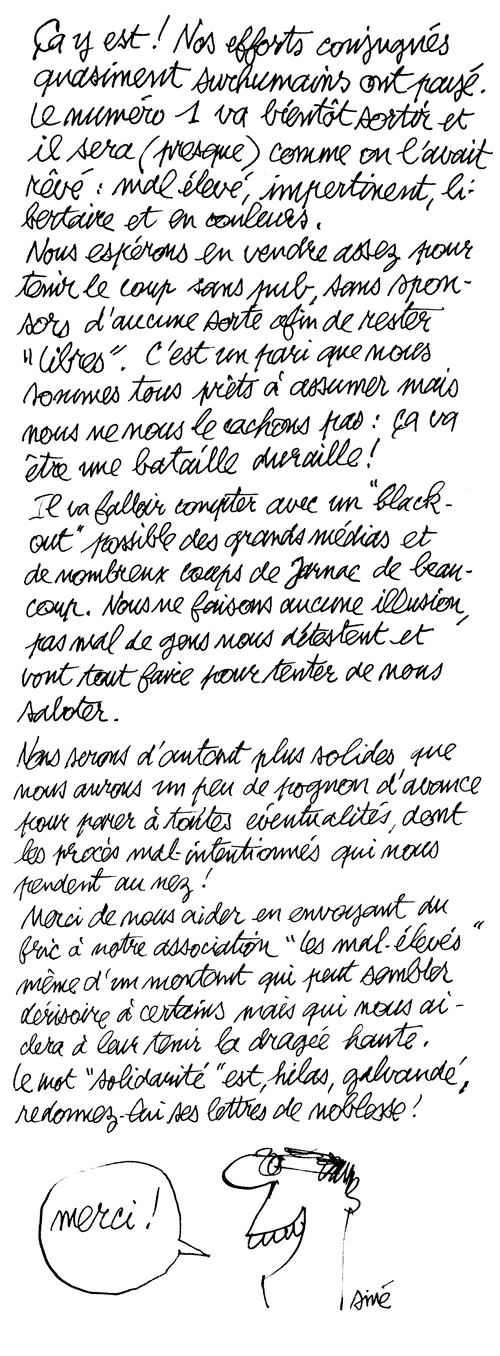 Ça y est ! Nos efforts conjugués
quasiment surhumains ont payé.
Le numéro 1 va bientôt sortir et
il sera (presque) comme on l'avait
rêvé : mal élevé, impertinent, li-
bertaire et en couleurs.
Nous espérons en vendre assez pour
tenir le coup sans pub, sans spon-
sors d'aucune sorte afin de rester
"libres". C'est un pari que nous
sommes tous prêts à assumer mais
nous ne nous le cachons pas : ça va
être une bataille duraille !
Il va falloir compter avec un "black-
out" possible des grands médias et
de nombreux coups de Jarnac de beau-
coup. Nous ne faisons aucune illusion,
pas mal de gens nous détestent et
vont tout faire pour tenter de nous
saboter.
Nous serons d'autant plus solides que
nous aurons un peu de pognon d'avance
pour parer à toutes éventualités, dont
les procès mal-intentionnés qui nous
pendent au nez !
Merci de nous aider en envoyant du
fric à notre association "les mal-élevés"
même d'un montant qui peut sembler
dérisoire à certains mais qui nous ai-
dera à leur tenir la dragée haute.
Le mot "solidarité" est, hélas, galvaudé,
redonnez-lui ses lettres de noblesse !
merci !
siné